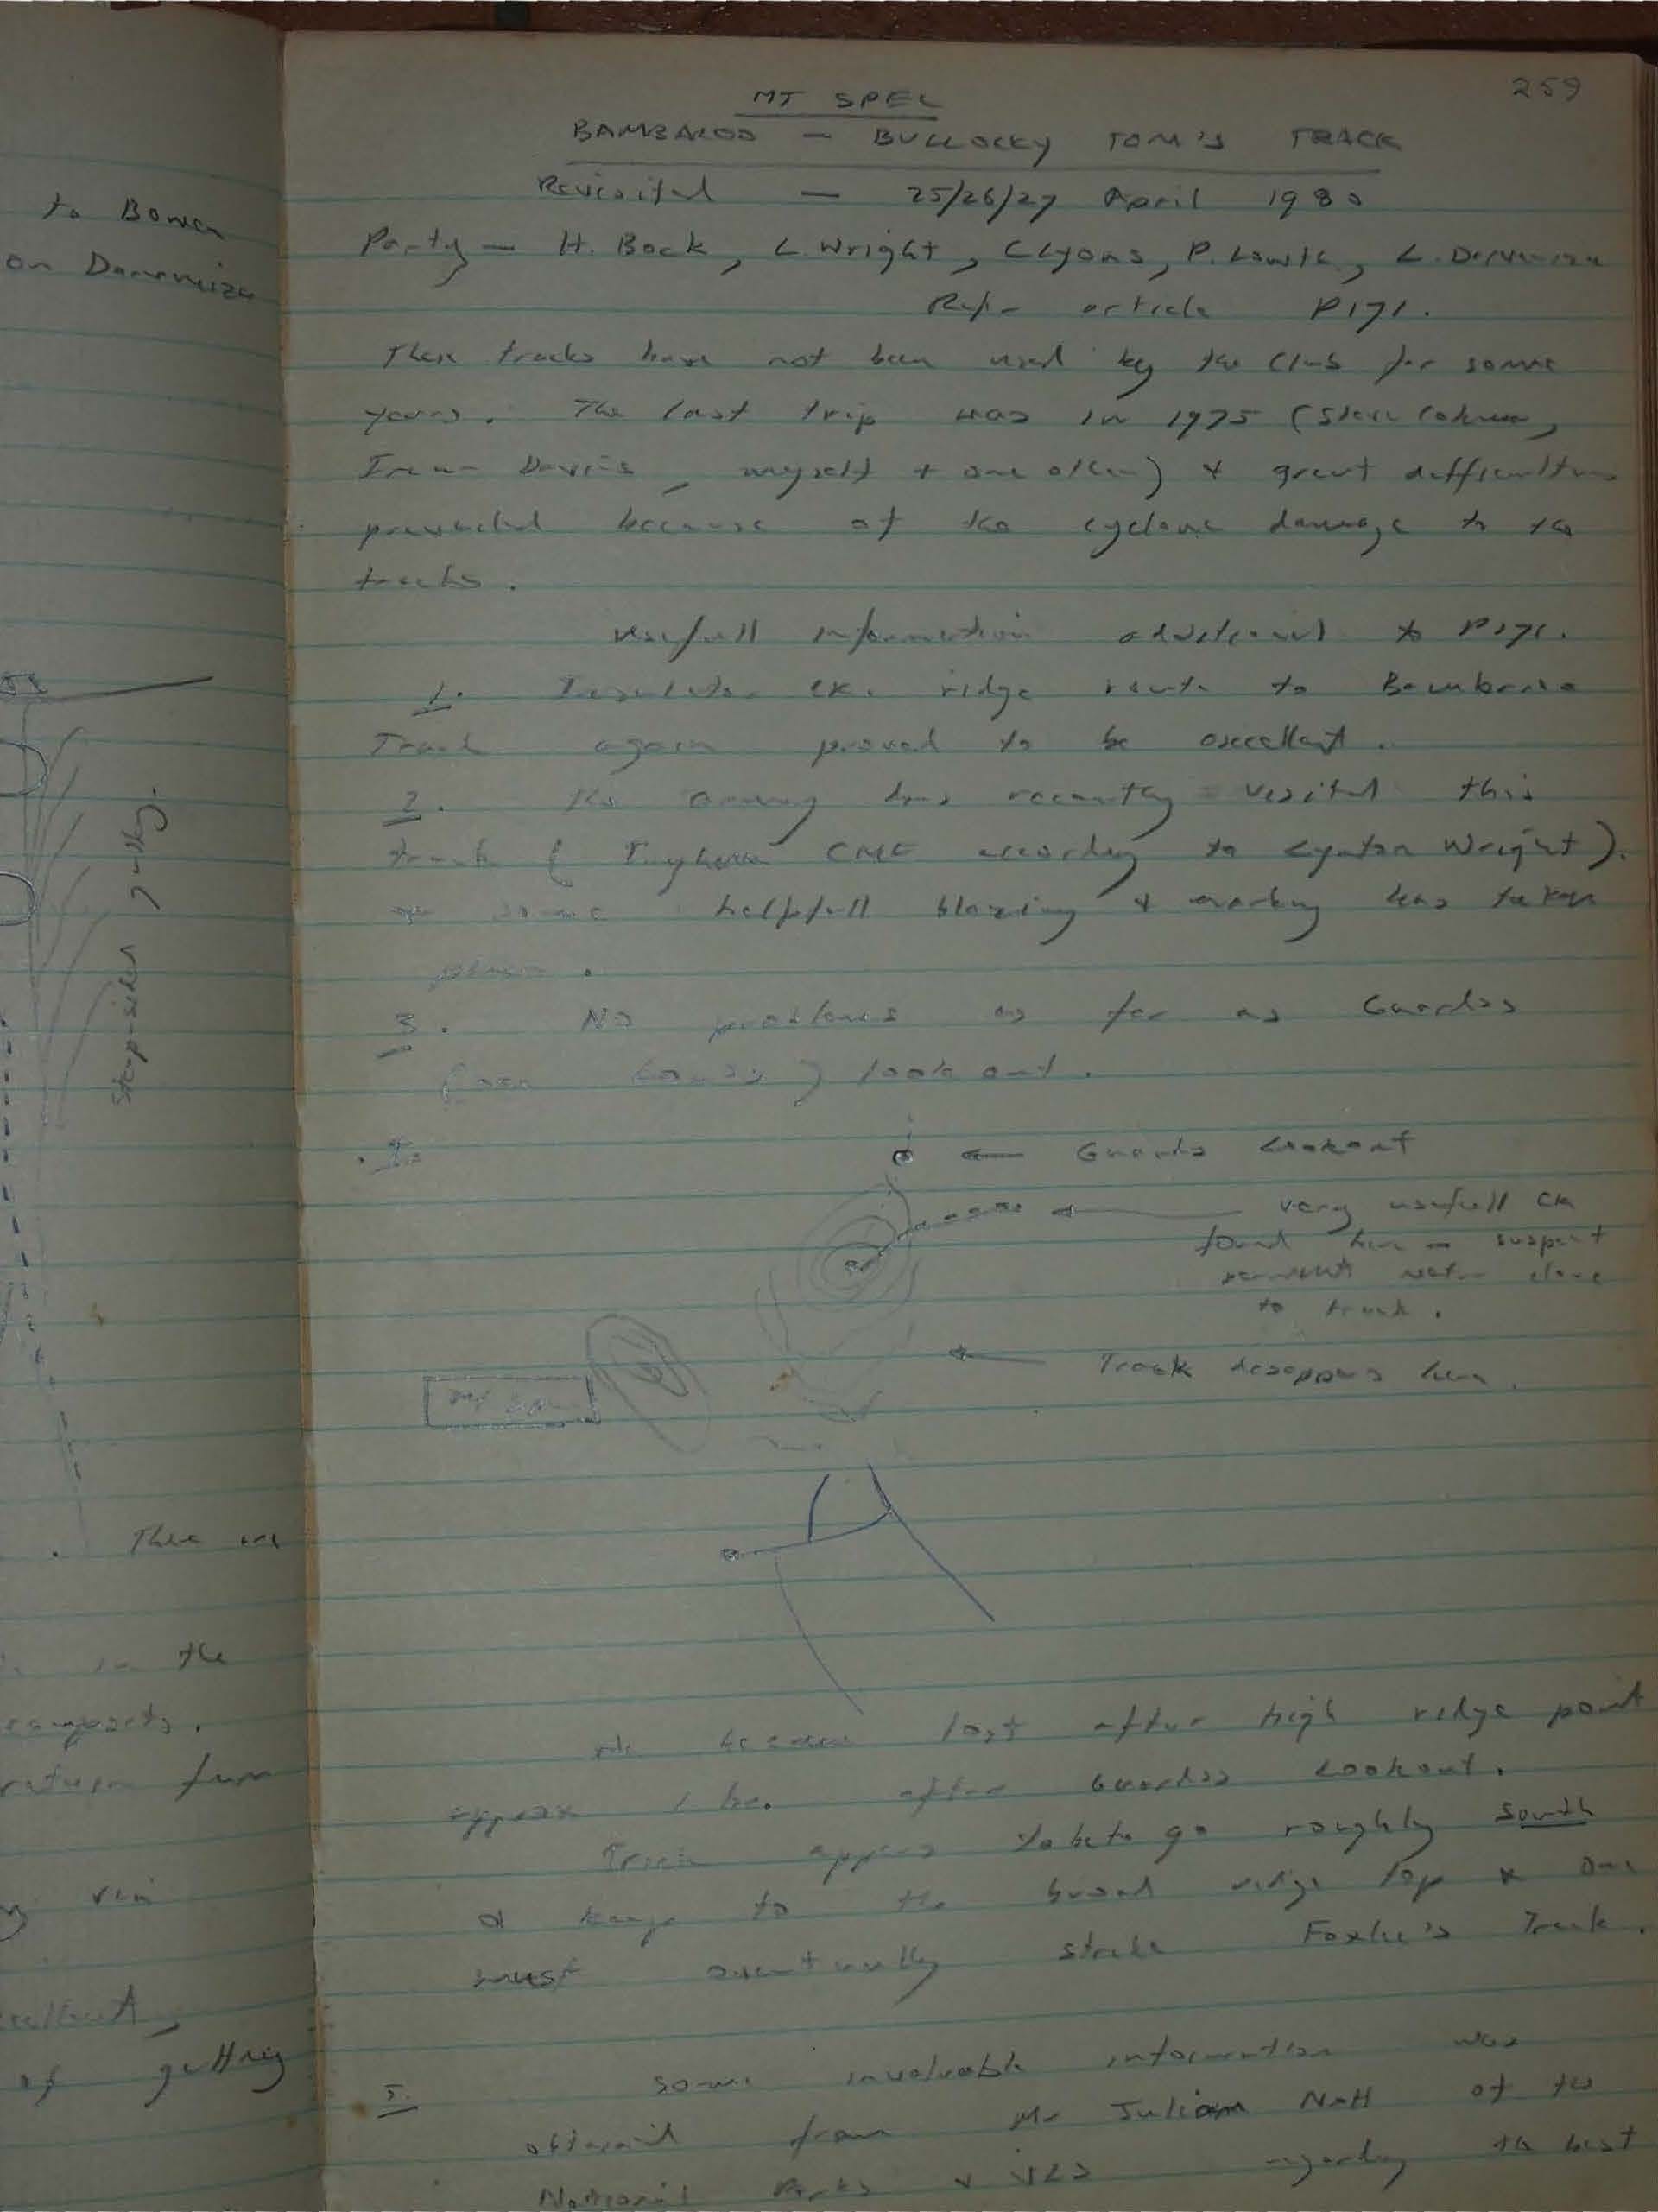 to Bowen
on
Steep-sided gully.
There are
in the
return from
via
of getting
259
MT SPEC
BAMBAROO — BULLOCKY TOM'S TRACK
Revisited — 25/26/27 April 1980
Party — H. Bock, L. Wright, C Lyons, P. Lowth, L.
Refer article P171.
These tracks have not been used by the Club for some
years. The last trip was in 1975 (Steve
Davis, myself + one other) & great difficulties
prevailed because of the cyclone damage to the
tracks.
Usefull information additional to P171.
1. ck. ridge route to Bambaroo
Track again proved to be excellent.
2. The army has recently visited this
track ( Ingham CMF according to Lynton Wright).
some helpfull blazing & marking has taken
place.
3. No problems as far as Guardas
look out.
4.
← Guards Lookout
← very usefull ck
found here - suspect
water close
to track.
← Track disappears here.
We became lost after high ridge point
approx 1 hr. after Guardas Lookout.
Track appears to go roughly South
& keeps to the broad ridge top & one
must eventually strike Foxlee's Track.
5. Some invaluable information was
obtained from Mr Julian Nott of the
National Parks & regarding the best